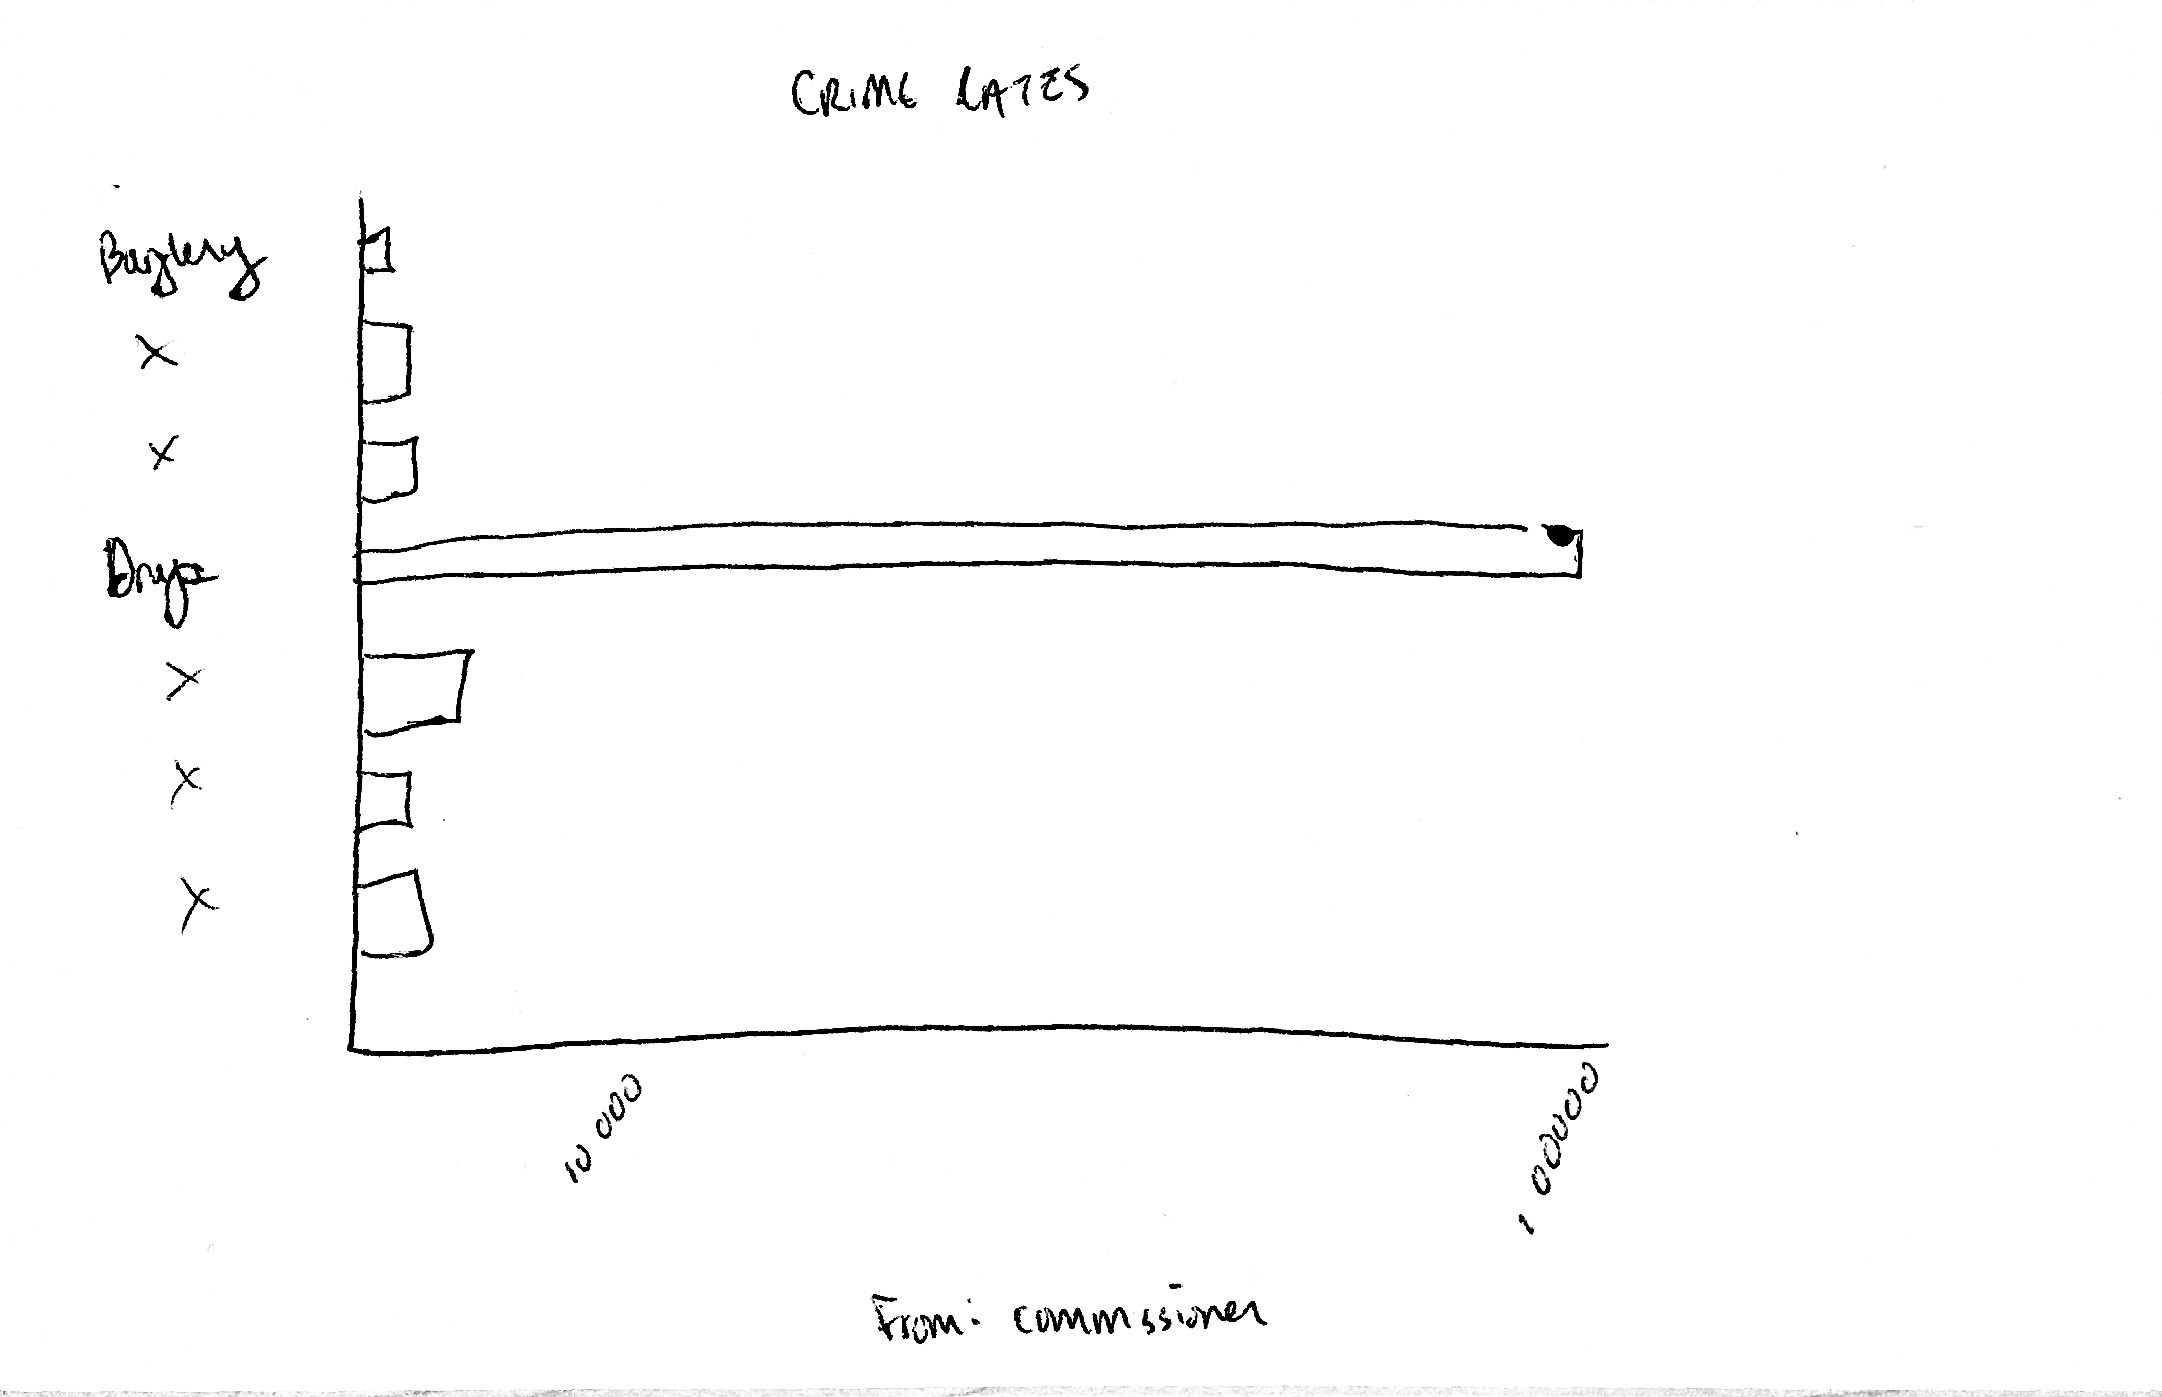 CRIME RATES
Burglery
X
X
Drugs
X
X
X
10 000
1 00000
From: commssioner